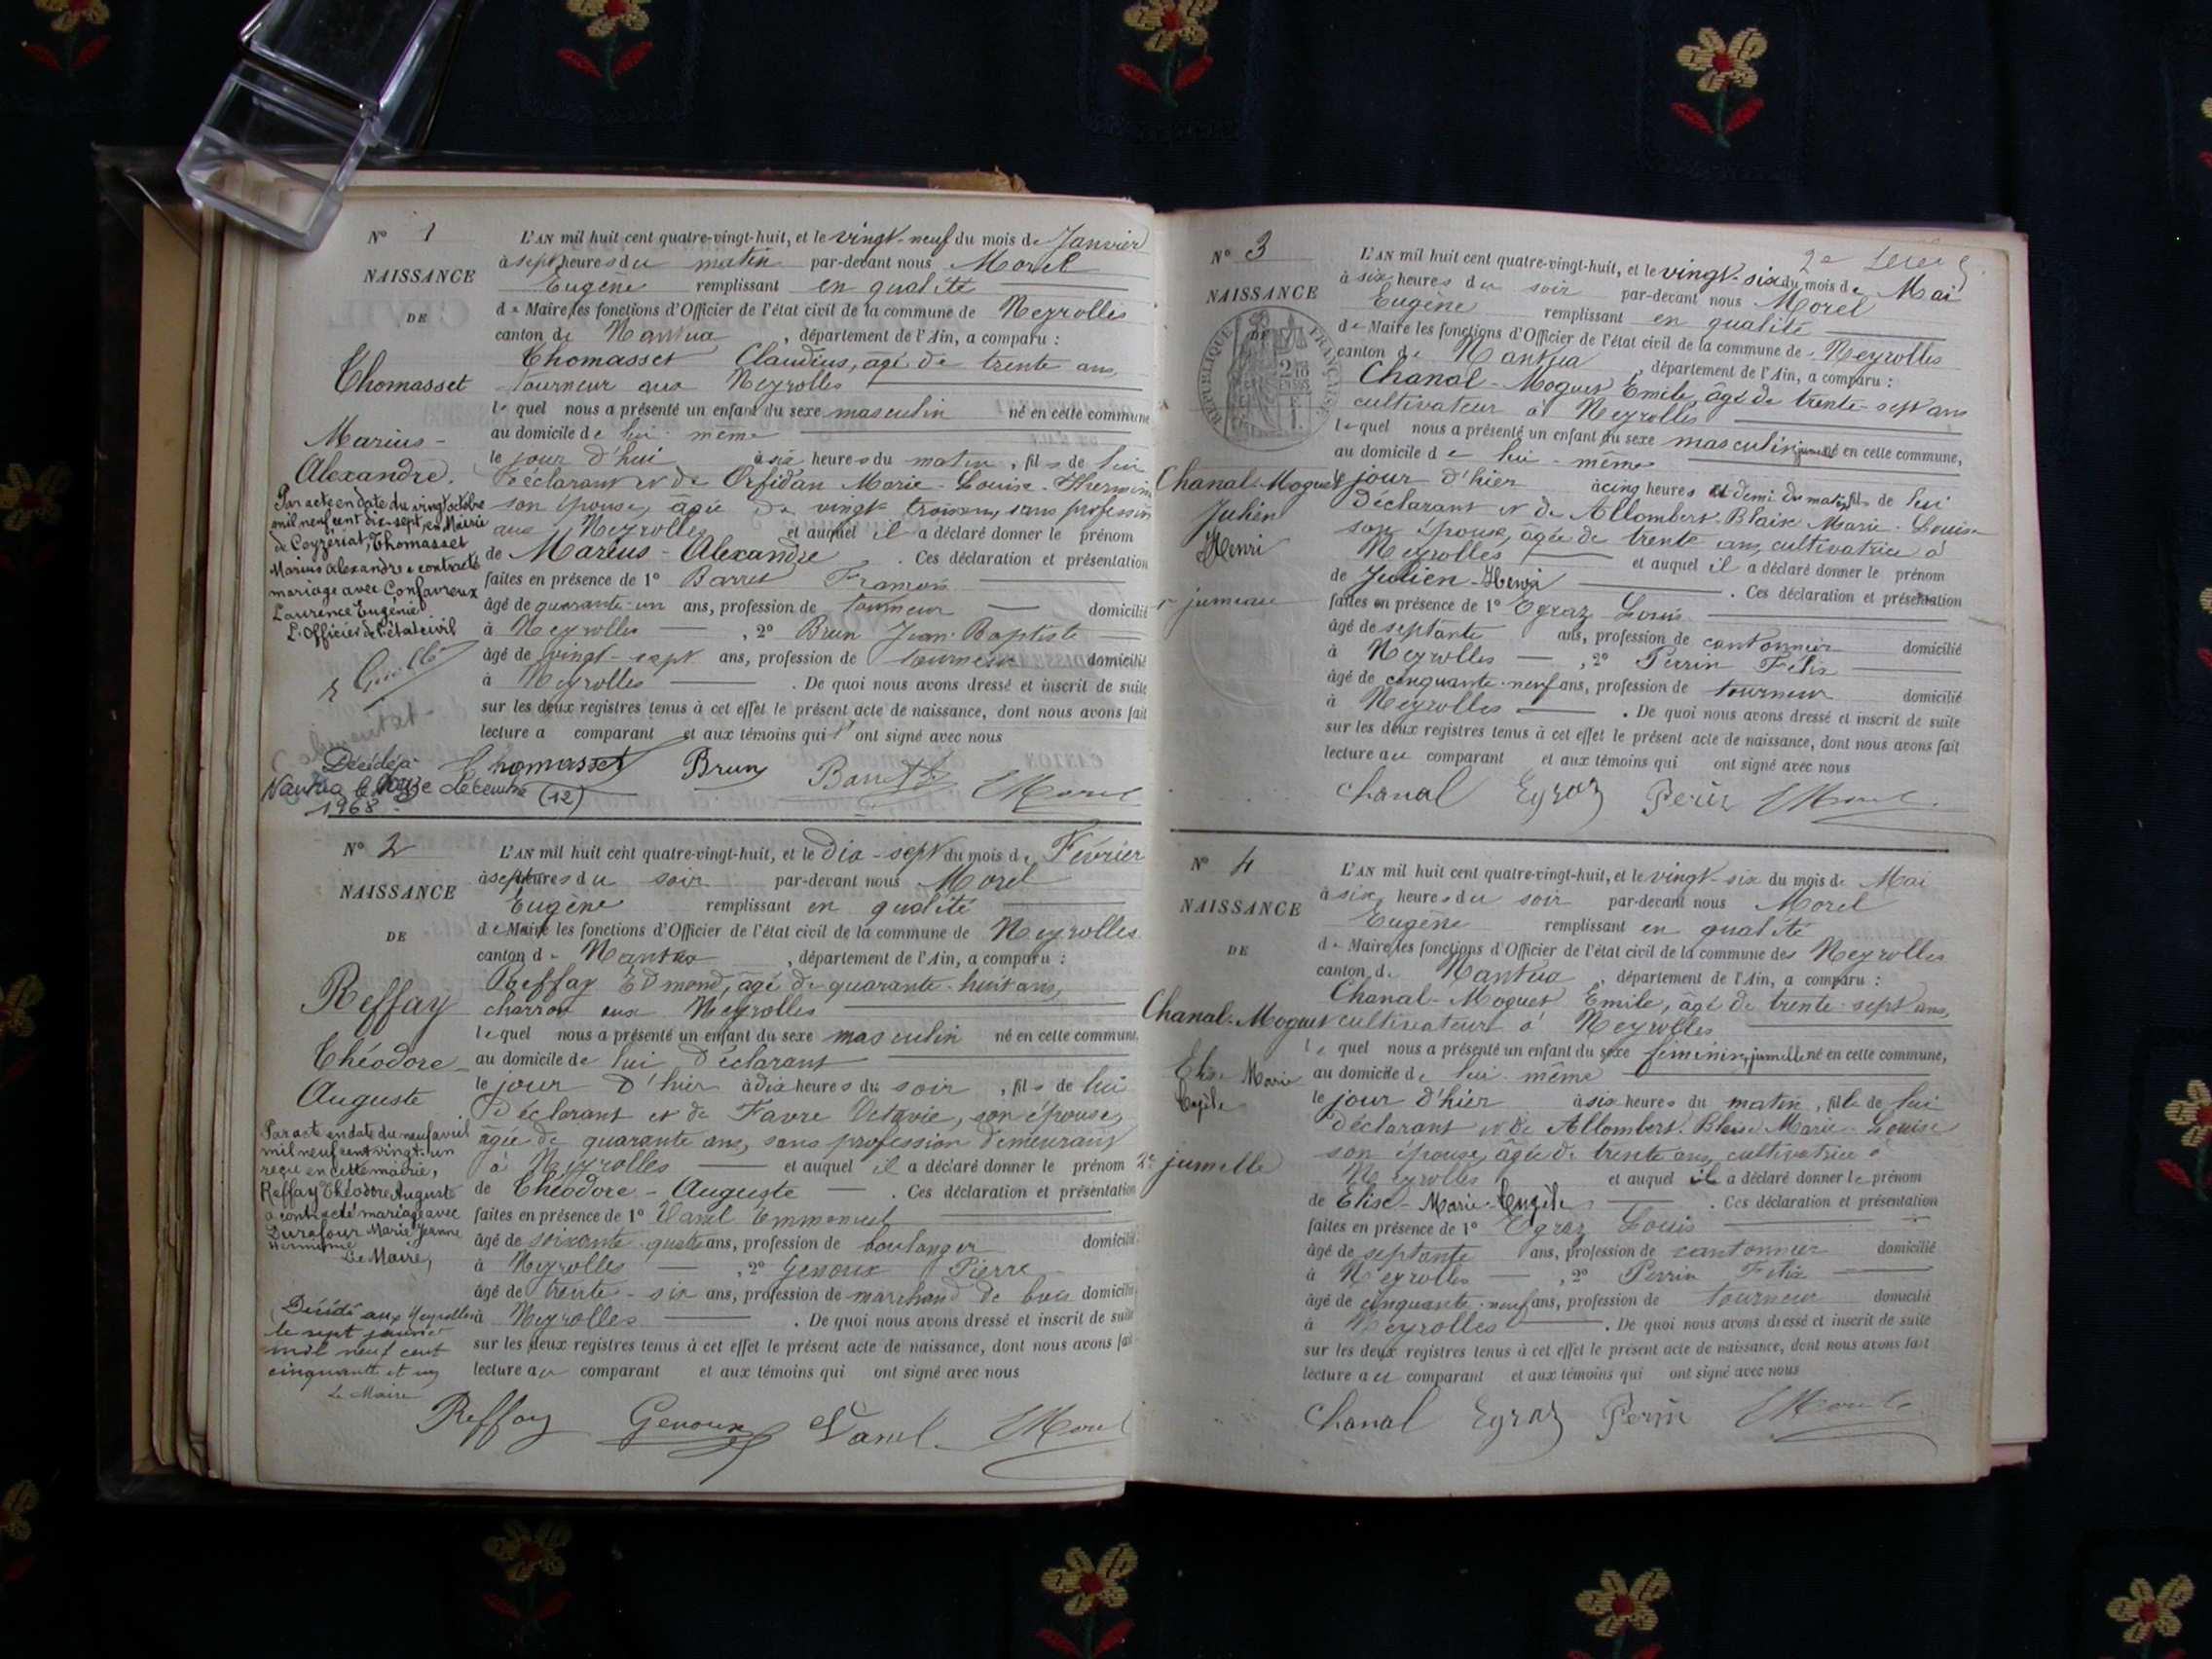 N° 1
NAISSANCE
DE
Thomasset
Marius-
Alexandre.
Par acte en date du vingt octobre
mil neuf cent dix-sept, en Mairie
de Ceyzériat, Thomasset
Marius Alexandre a contracté
mariage avec Confavreux
Laurence Eugénie
L'Officier de l'état civil
Décédé à
Nantua le douze décembre (12)
1968
L'AN mil huit cent quatre-vingt-huit, et le vingt-neuf du mois de Janvier
à sept heures du matin par-devant nous Morel
Eugène remplissant en qualité
de Maire les fonctions d'Officier de l'état civil de la commune de Neyrolles
canton de Nantua, département de l'Ain, a comparu :
Thomasset Claudius, agé de trente ans,
tourneur aux Neyrolles
lequel nous a présenté un enfant du sexe masculin né en cette commune
au domicile de lui même
le jour d'hui à six heures du matin, fils de lui
déclarant et de Orfidan Marie-Louise-Hermine
son épouse, âgée de vingt trois ans, sans profession
aux Neyrolles et auquel il a déclaré donner le prénom
de Marius-Alexandre. Ces déclaration et présentation
faites en présence de 1° Barret François
âgé de quarante-un ans, profession de tourneur domicilié
à Neyrolles, 2° Brun Jean-Baptiste
âgé de vingt-sept ans, profession de tourneur domicilié
à Neyrolles. De quoi nous avons dressé et inscrit de suite
sur les deux registres tenus à cet effet le présent acte de naissance, dont nous avons fait
lecture a comparant et aux témoins qui ont signé avec nous
Thomasset Brun Barret Morel
N° 2
NAISSANCE
DE
Reffay
Théodore-
Auguste
Par acte en date du neuf avril
mil neuf cent vingt-un
reçu en cette mairie,
Reffay Théodore Auguste
a contracté mariage avec
Durafour Marie Jeanne
Hermine
Le Maire,
Décédé aux Neyrolles
le sept janvier
mil neuf cent
cinquante et un
Le Maire
L'AN mil huit cent quatre-vingt-huit, et le dix-sept du mois de Février
à sept heures du soir par-devant nous Morel
Eugène remplissant en qualité
de Maire les fonctions d'Officier de l'état civil de la commune de Neyrolles
canton de Nantua, département de l'Ain, a comparu :
Reffay Edmond, âgé de quarante-huit ans,
charron aux Neyrolles
lequel nous a présenté un enfant du sexe masculin né en cette commune,
au domicile de lui déclarant
le jour d'hier à dix heures du soir, fils de lui
Déclarant et de Favre Octavie, son épouse,
âgée de quarante ans, sans profession demeurant
à Neyrolles et auquel il a déclaré donner le prénom
de Théodore-Auguste. Ces déclaration et présentation
faites en présence de 1° Vanel Emmanuel
âgé de soixante-quatre ans, profession de boulanger domicilié
à Neyrolles, 2° Genoux Pierre
âgé de trente-six ans, profession de marchand de bois domicilié
à Neyrolles. De quoi nous avons dressé et inscrit de suite
sur les deux registres tenus à cet effet le présent acte de naissance, dont nous avons fait
lecture au comparant et aux témoins qui ont signé avec nous
Reffay Genoux Vanel Morel
N° 3
NAISSANCE
DE
RÉPUBLIQUE FRANÇAISE
Chanal-Moguet
Julien
Henri
1er jumeau
L'AN mil huit cent quatre-vingt-huit, et le vingt-six du mois de Mai
à six heures du soir par-devant nous Morel
Eugène remplissant en qualité
de Maire les fonctions d'Officier de l'état civil de la commune de Neyrolles
canton de Nantua, département de l'Ain, a comparu :
Chanal-Moguet Emile, âgé de trente-sept ans
cultivateur à Neyrolles
lequel nous a présenté un enfant du sexe masculin jumeau né en cette commune,
au domicile de lui-même
le jour d'hier à cinq heures et demi du matin, fils de lui
Déclarant et de Allombert-Blaise Marie-Louise
son épouse, âgée de trente ans, cultivatrice à
Neyrolles et auquel il a déclaré donner le prénom
de Julien-Henri. Ces déclaration et présentation
faites en présence de 1° Egraz Louis
âgé de septante ans, profession de cantonnier domicilié
à Neyrolles, 2° Perrin Felix
âgé de cinquante-neuf ans, profession de tourneur domicilié
à Neyrolles. De quoi nous avons dressé et inscrit de suite
sur les deux registres tenus à cet effet le présent acte de naissance, dont nous avons fait
lecture au comparant et aux témoins qui ont signé avec nous
Chanal Egraz Perin Morel
N° 4
NAISSANCE
DE
Chanal-Moguet
Elise Marie
2e jumelle
L'AN mil huit cent quatre-vingt-huit, et le vingt-six du mois de Mai
à six heures du soir par-devant nous Morel
Eugène remplissant en qualité
de Maire les fonctions d'Officier de l'état civil de la commune des Neyrolles
canton de Nantua, département de l'Ain, a comparu :
Chanal-Moguet Emile, âgé de trente-sept ans,
cultivateur à Neyrolles
lequel nous a présenté un enfant du sexe féminin, jumelle né en cette commune,
au domicile de lui-même
le jour d'hier à six heures du matin, fille de lui
déclarant et de Allombert-Blaise Marie-Louise
son épouse, âgée de trente ans, cultivatrice à
Neyrolles et auquel il a déclaré donner le prénom
de Elise-Marie. Ces déclaration et présentation
faites en présence de 1° Egraz Louis
âgé de septante ans, profession de cantonnier domicilié
à Neyrolles, 2° Perrin Felix
âgé de cinquante-neuf ans, profession de tourneur domicilié
à Neyrolles. De quoi nous avons dressé et inscrit de suite
sur les deux registres tenus à cet effet le présent acte de naissance, dont nous avons fait
lecture au comparant et aux témoins qui ont signé avec nous
Chanal Egraz Perin Morel